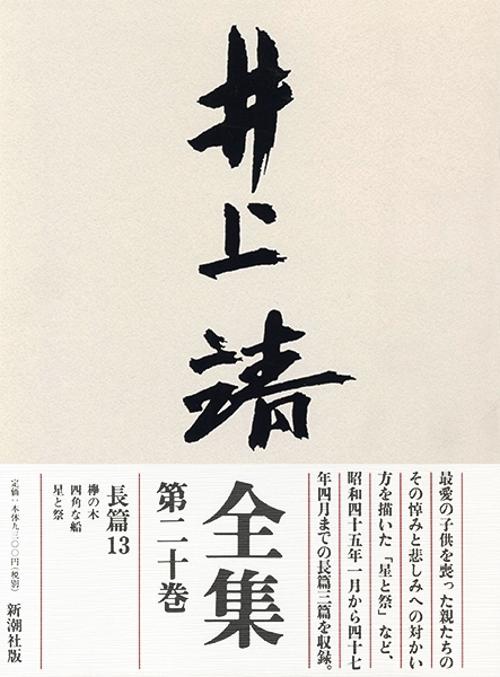 井上靖
全集
第二十巻
最愛の子供を喪った親たちの
その悼みと悲しみへの対かい
方を描いた「星と祭」など、
昭和四十五年一月から四十七
年四月までの長篇三篇を収録。
長篇13
欅の木
四角な船
星と祭
定価：本体九三〇〇円（税別）
新潮社版